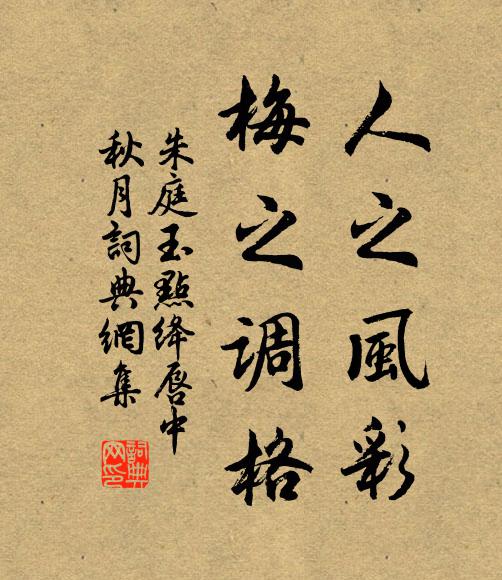 人之風彩
梅之调格
朱庭玉點绛唇中
秋月詞典網集
詞典网印